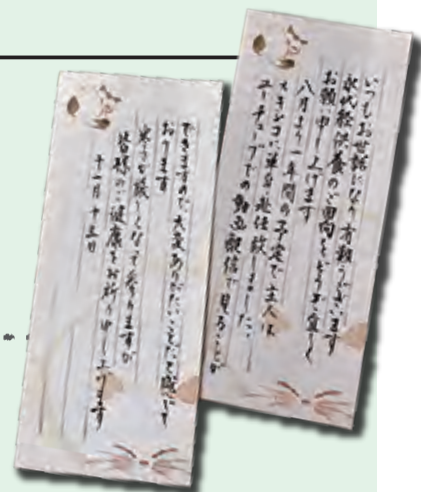 いつもお世話になり有難うございます
永代経供養のご回向をどうぞ宜しく
お願い申し上げます
八月より一年間の予定で主人は
メキシコに単身赴任致しました
ユーチューブでの動画配信で見ることが
できますので大変ありがたいことだと感じて
おります
寒さが厳しくなって参りますが
皆様のご健康をお祈り申し上げます
十一月十五日